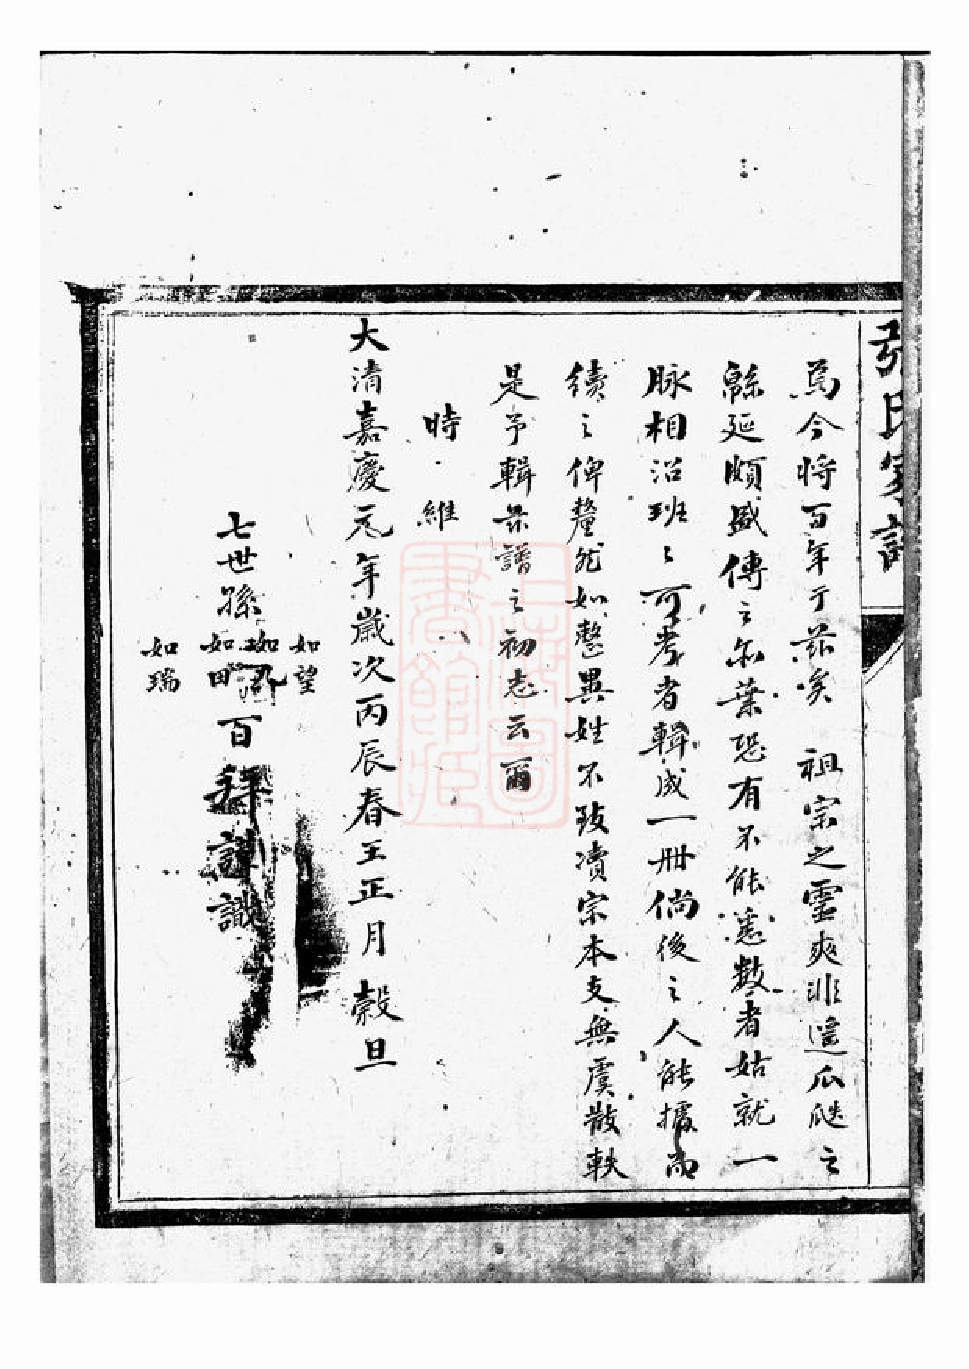 張氏家譜
焉今将百年于茲矣　祖宗之靈爽非遥瓜瓞之
緜延頗盛傳之奕葉恐有不能悉數者姑就一
脉相沿班之可考者輯成一冊倘後之人能據而
續之俾釐然如整異姓不致瀆宗本支無虞散軼
是予輯茲譜之初志云爾
時維
大清嘉慶元年歲次丙辰春王正月穀旦
如望
七世孫如田百拜謹識
如瑞
上海圖書館藏